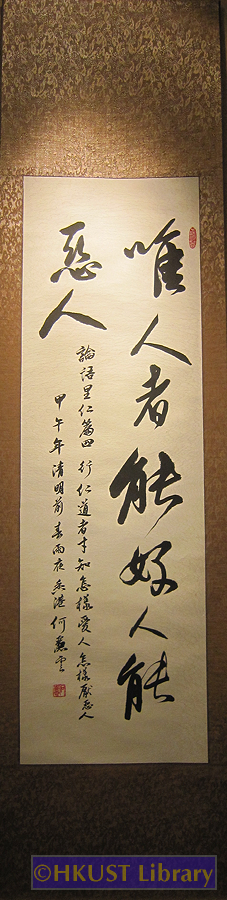 唯人者能好人能
惡人
論語里仁篇四 行仁道者才知怎樣愛人怎樣厭惡人
甲午年清明前春雨夜香港何蕙雲
©HKUST Library